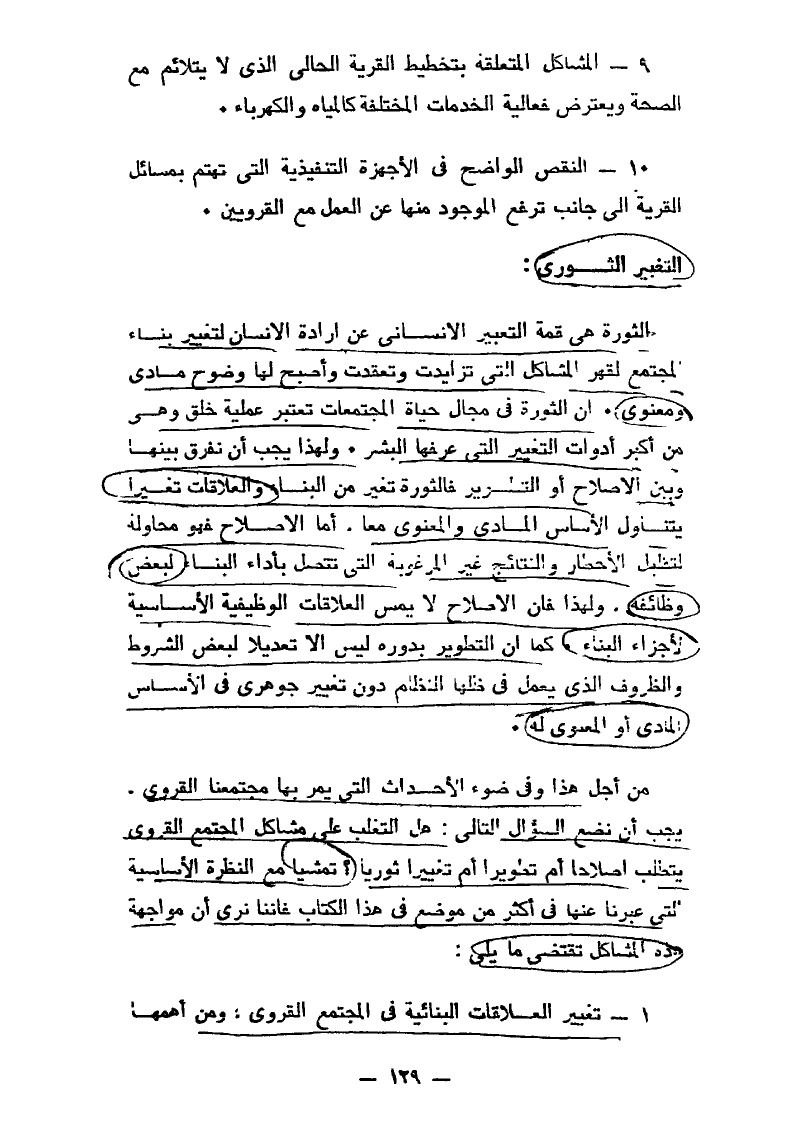 ٩ — المشاكل المتعلقة بتخطيط القرية الحالى الذى لا يتلائم مع
الصحة ويعترض فعالية الخدمات المختلفة كالمياه والكهرباء .
١٠ — النقص الواضح فى الأجهزة التنفيذية التى تهتم بمسائل
القرية الى جانب ترفع الموجود منها عن العمل مع القرويين .
التغيير الثـــورى :
الثورة هى قمة التعبير الانســانى عن ارادة الانسان لتغيير بنــاء
المجتمع لقهر المشاكل التى تزايدت وتعقدت وأصبح لها وضوح مــادى
ومعنوى . ان الثورة فى مجال حياة المجتمعات تعتبر عملية خلق وهــى
من أكبر أدوات التغيير التى عرفها البشر . ولهذا يجب أن نفرق بينهــا
وبين الاصلاح أو التطــوير فالثورة تغير من البناء والعلاقات تغيرا
يتنــاول الأساس المــادى والمعنوى معا . أما الاصــلاح فهو محاولة
لتقليل الأخطار والنتائج غير المرغوبة التى تتصل بأداء البنــاء لبعض
وظائفه . ولهذا فان الاصلاح لا يمس العلاقات الوظيفية الأســاسية
لأجزاء البناء . كما ان التطوير بدوره ليس الا تعديلا لبعض الشروط
والظروف الذى يعمل فى ظلها النظام دون تغيير جوهرى فى الأســاس
المادى أو المعنوى له .
من أجل هذا وفى ضوء الأحــداث التى يمر بها مجتمعنا القروى .
يجب أن نضع السؤال التالى : هل التغلب على مشاكل المجتمع القروى
يتطلب اصلاحا أم تطويرا أم تغييرا ثوريا ؟ تمشيا مع النظرة الأساسية
التى عبرنا عنها فى أكثر من موضع فى هذا الكتاب فاننا نرى أن مواجهة
هذه المشاكل تقتضى ما يلى :
١ — تغيير العــلاقات البنائية فى المجتمع القروى ؛ ومن أهمهــا
— ١٢٩ —